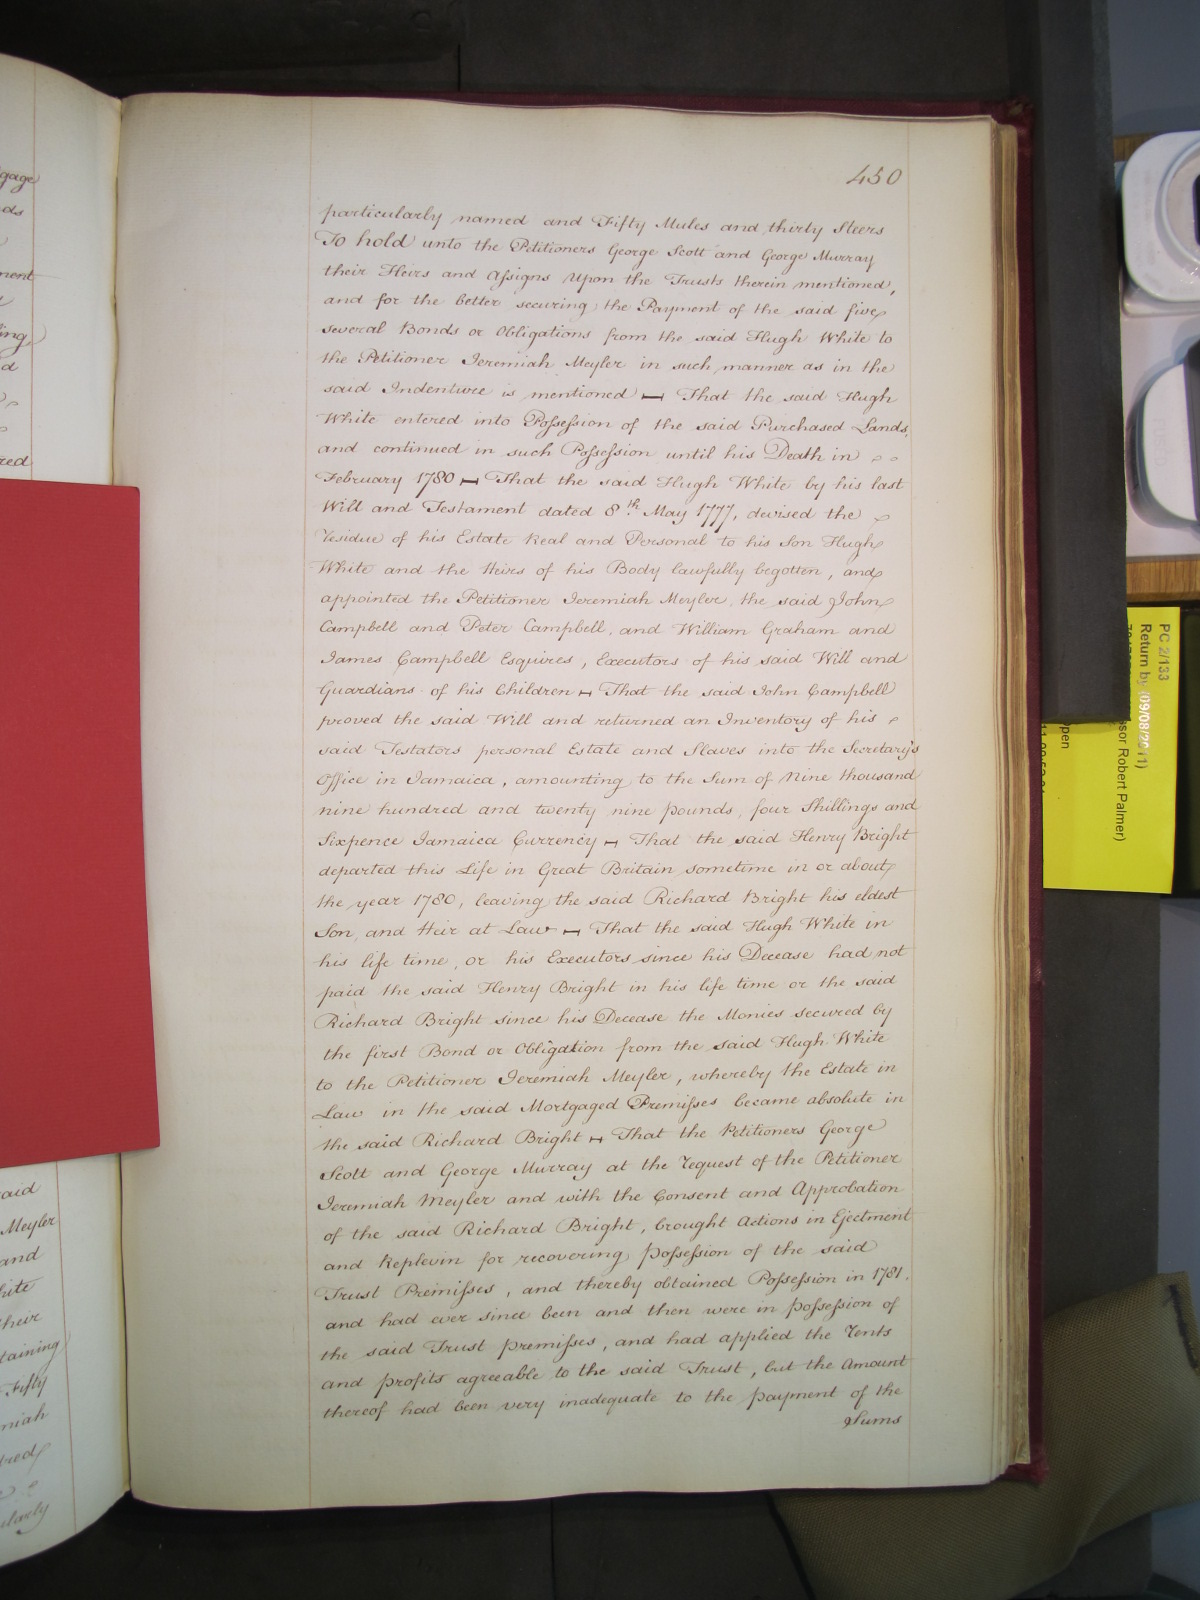 450
particularly named and Fifty Mules and thirty Steers
To hold unto the Petitioners George Scott and George Murray
their Heirs and Assigns Upon the Trusts therein mentioned,
and for the better securing the Payment of the said five
several Bonds or Obligations from the said Hugh White to
the Petitioner Jeremiah Meyler in such manner as in the
said Indenture is mentioned — That the said Hugh
White entered into Possession of the said Purchased Lands,
and continued in such Possession until his Death in
February 1780 — That the said Hugh White by his last
Will and Testament dated 8th May 1777, devised the
Residue of his Estate Real and Personal to his Son Hugh
White and the Heirs of his Body lawfully begotten, and
appointed the Petitioner Jeremiah Meyler, the said John
Campbell and Peter Campbell, and William Graham and
James Campbell Esquires, Executors of his said Will and
Guardians of his Children — That the said John Campbell
proved the said Will and returned an Inventory of his
said Testators personal Estate and Slaves into the Secretary's
Office in Jamaica, amounting to the Sum of Nine thousand
nine hundred and twenty nine pounds, four Shillings and
Sixpence Jamaica Currency — That the said Henry Bright
departed this Life in Great Britain sometime in or about
the year 1780, leaving the said Richard Bright his eldest
Son, and Heir at Law — That the said Hugh White in
his life time, or his Executors since his Decease had not
paid the said Henry Bright in his life time or the said
Richard Bright since his Decease the Monies secured by
the first Bond or Obligation from the said Hugh White
to the Petitioner Jeremiah Meyler, whereby the Estate in
Law in the said Mortgaged Premisses became absolute in
the said Richard Bright — That the Petitioners George
Scott and George Murray at the request of the Petitioner
Jeremiah Meyler and with the Consent and Approbation
of the said Richard Bright, brought Actions in Ejectment
and Replevin for recovering Possession of the said
Trust Premisses, and thereby obtained Possession in 1781.
and had ever since been and then were in possession of
the said Trust premisses, and had applied the Rents
and profits agreeable to the said Trust, but the Amount
thereof had been very inadequate to the payment of the
Sums
PC 2/133
Return by (09/08/2011)
Robert Palmer)